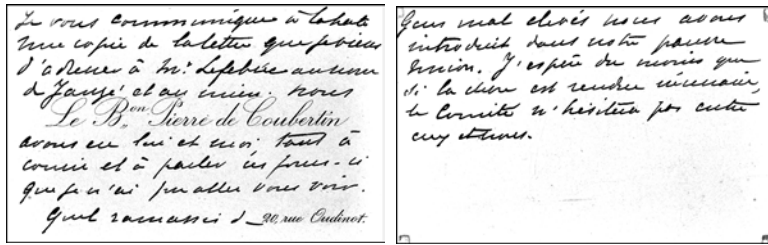 Je vous communique à la hâte
une copie de la lettre que je viens
d'adresser à Mr. Lefebvre au nom
de Jaugé et au mien. Nous
Le Bon Pierre de Coubertin
avons eu lui et moi tant à
courir et à parler ces jours-ci
que je n'ai pu aller vous voir.
Quel ramassis d
20, rue Oudinot.
Gens mal élevés nous avons
introduit dans notre pauvre
Union. J'espère du moins que
si la chose est rendue nécessaire,
le Comité n'hésitera pas entre
eux et nous.